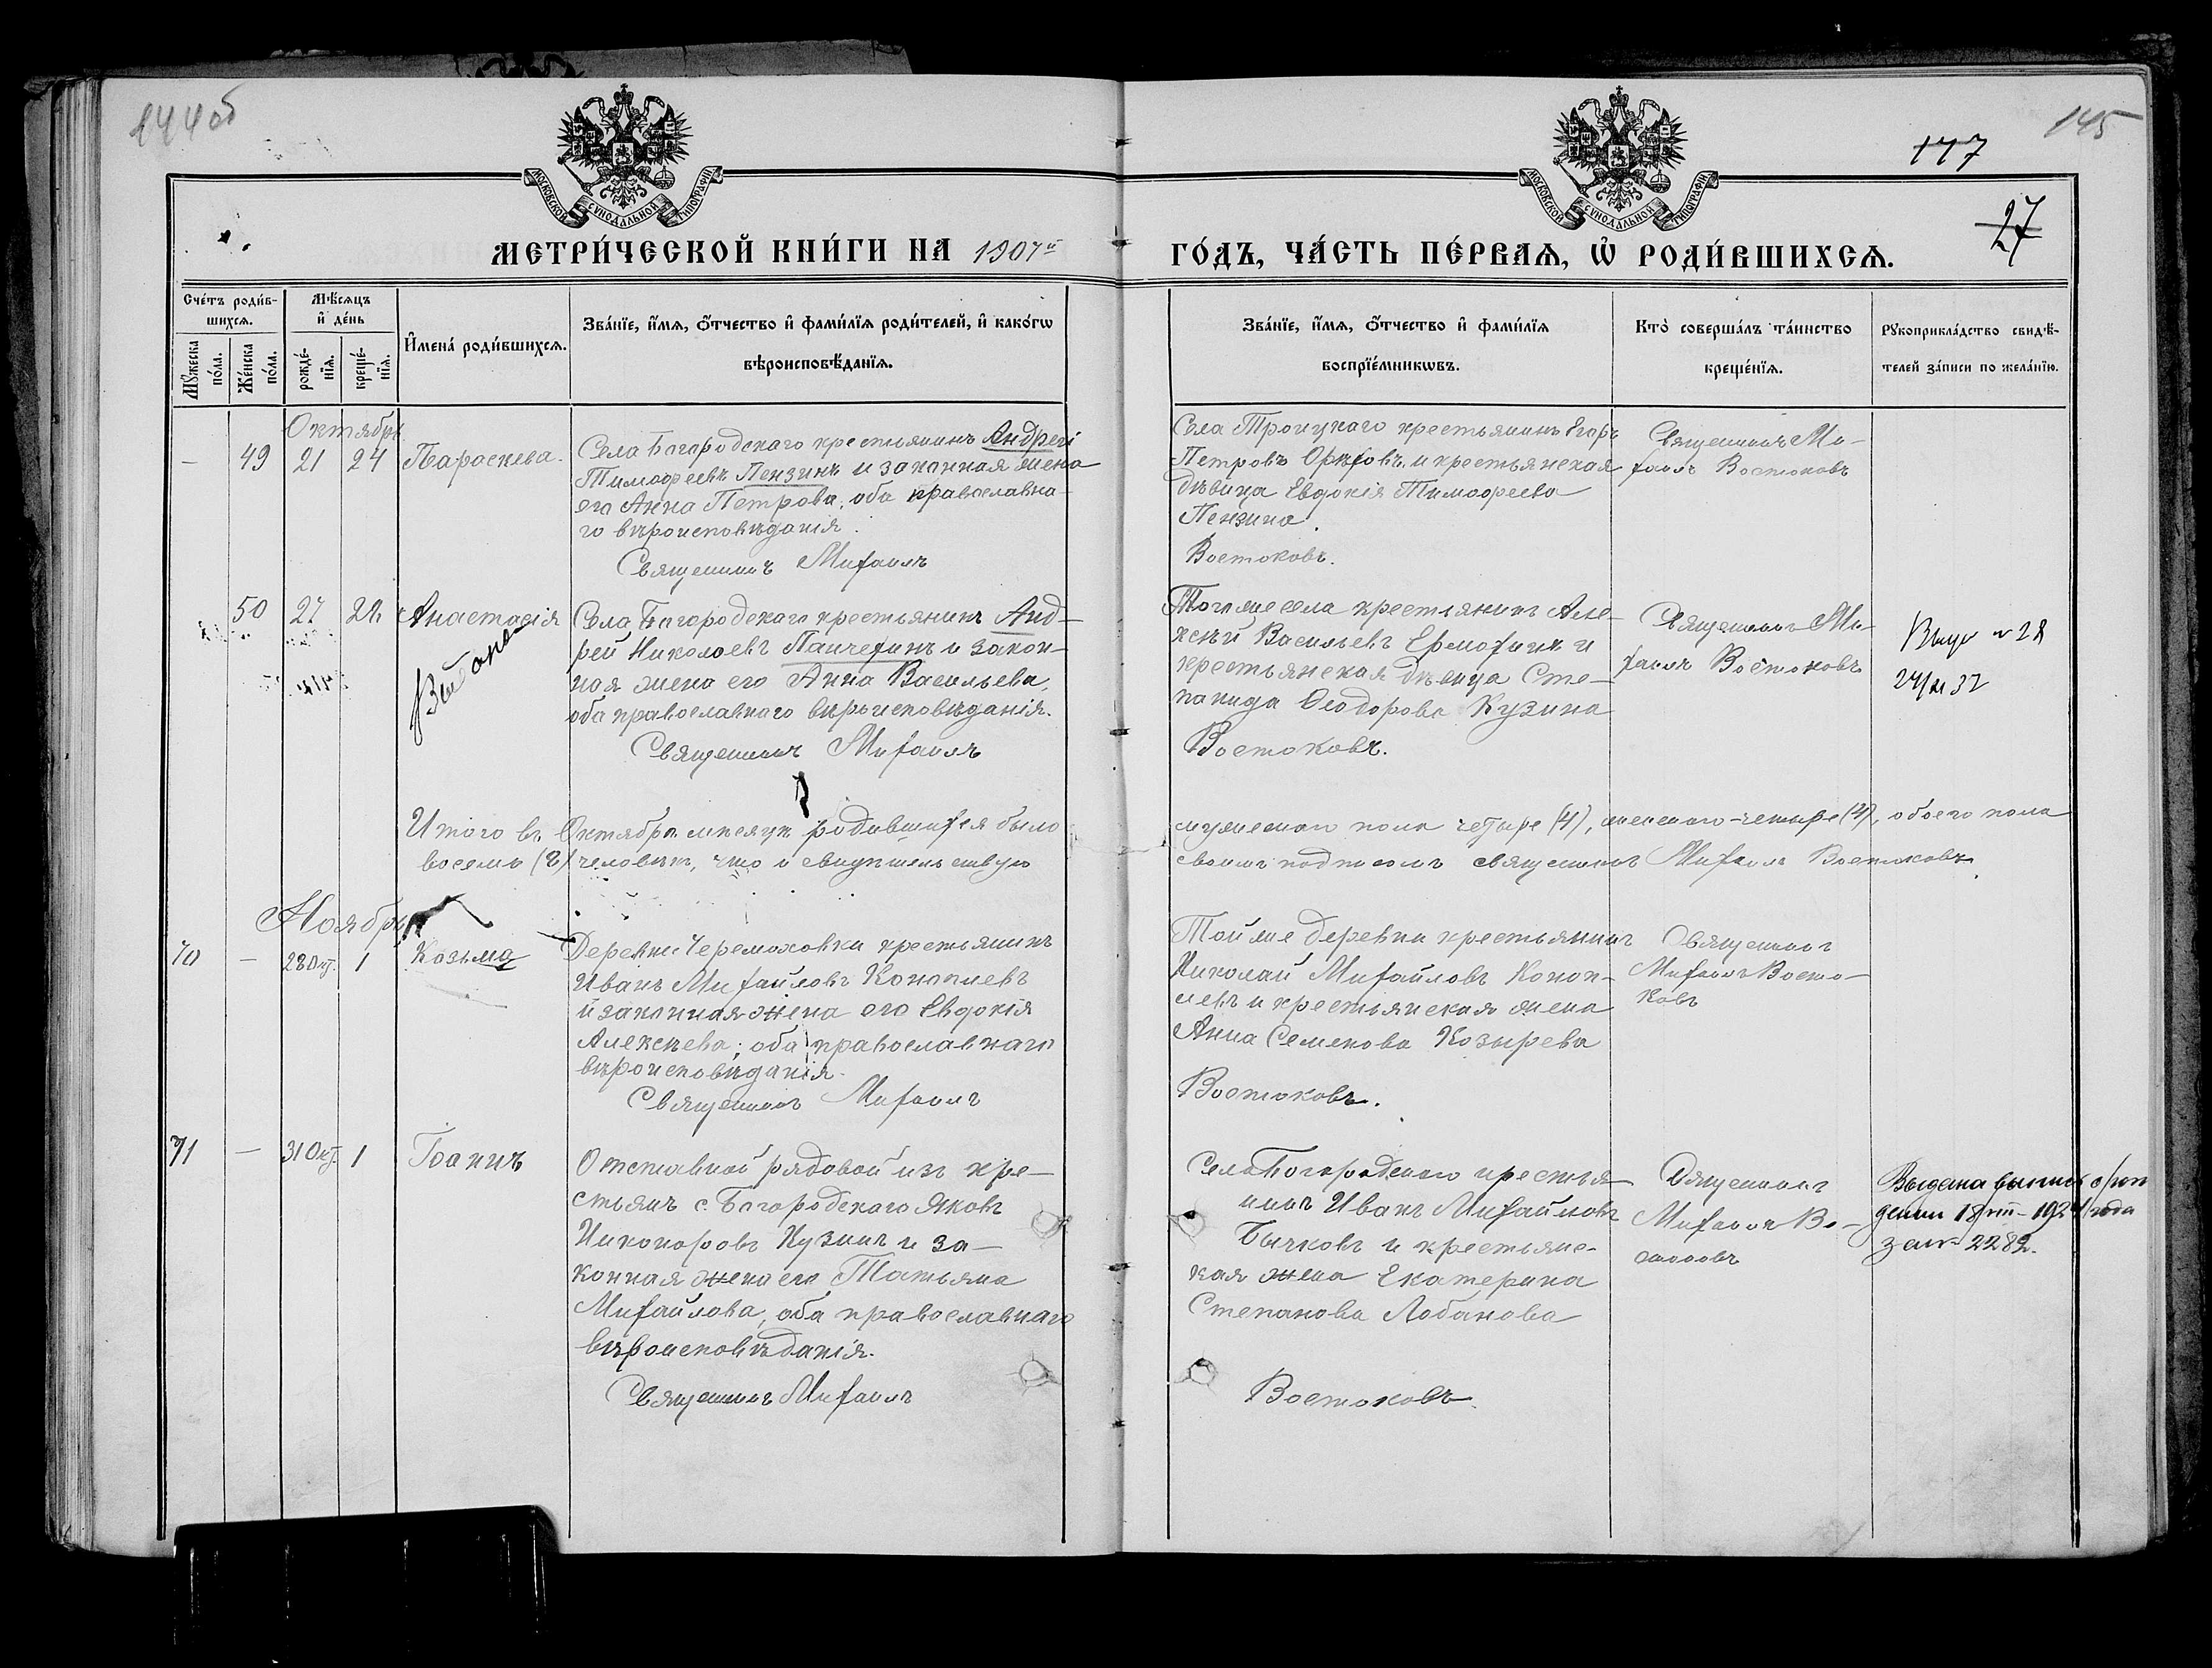 144об
145
177
27
27
МОСКОВСКОЙ СѴНОДАЛЬНОЙ ТИПОГРАФІИ
МОСКОВСКОЙ СѴНОДАЛЬНОЙ ТИПОГРАФІИ
МЕТРИ́ЧЕСКОЙ КНИ́ГИ НА 1907й
ГО́ДЪ, ЧА́СТЬ ПЕ́РВАѦ, Ѡ҆ РОДИ́ВШИХСѦ.
Сче́тъ роди́в-
шихсѧ.
Мꙋ́жеска по́ла.
Же́нска по́ла.
Мѣ́сѧцъ
и҆ де́нь
рожде́-
нїѧ.
креще́-
нїѧ.
И҆мена́ роди́вшихсѧ.
Зва́нїе, и҆́мѧ, ѻ҆́тчество и҆ фами́лїѧ роди́телей, и҆ како́гѡ
вѣроисповѣ́данїѧ.
Зва́нїе, и҆́мѧ, ѻ҆́тчество и҆ фами́лїѧ
воспрїе́мникѡвъ.
Кто̀ соверша́лъ та́инство
креще́нїѧ.
Рꙋкоприкла́дство свидѣ́-
телей за́писи по жела́нїю.
Октябрь
— 49 21 24 Параскева.
Села Богородскаго крестьянинъ Андрей
Тимоѳеевъ Пензинъ и законная жена
его Анна Петрова, оба православна-
го вѣроисповѣданія.
Священникъ Михаилъ
Села Троицкаго крестьянинъ Егоръ
Петровъ Орѣховъ и крестьянская
дѣвица Евдокія Тимоѳеева
Пензина.
Востоковъ.
Священникъ Ми-
хаилъ Востоковъ
50 27 28 Анастасія
Села Богородскаго крестьянинъ Анд-
рей Николаевъ Панчехинъ и закон-
ная жена его Анна Васильева,
оба православнаго вѣроисповѣданія.
Священникъ Михаилъ
Того же села крестьянинъ Але-
ксѣй Васильевъ Ермохинъ и
крестьянская дѣвица Сте-
панида Ѳеодорова Кузина
Востоковъ.
Священникъ Ми-
хаилъ Востоковъ
№ 28
32
Итого въ Октябрѣ мѣсяцѣ родившихся было
мужескаго пола четыре (4), женскаго-четыре (4), обоего пола
восемь (8) человѣкъ, что и свидѣтельствую
своимъ подписомъ священникъ Михаилъ Востоковъ.
Ноябрь
70 — 28 Окт. 1 Козьма
Деревни Черемоховки крестьянинъ
Иванъ Михайловъ Коноплевъ
и законная жена его Евдокія
Алексѣева; оба православнаго
вѣроисповѣданія.
Священникъ Михаилъ
Той же деревни крестьянинъ
Николай Михайловъ Коноп-
левъ и крестьянская жена
Анна Семенова Козырева
Востоковъ.
Священникъ
Михаилъ Восто-
ковъ
71 — 31 Окт. 1 Іоаннъ
Отставной рядовой изъ кре-
стьянъ с. Богородскаго Яковъ
Никоноровъ Кузинъ и за-
конная жена его Татьяна
Михайлова, оба православнаго
вѣроисповѣданія.
Священникъ Михаилъ
Села Богородскаго крестья-
нинъ Иванъ Михайловъ
Бычковъ и крестьянс-
кая жена Екатерина
Степанова Лобанова
Востоковъ.
Священникъ
Михаилъ Во-
стоковъ
Выдана выпись о рож
дении 18/VIII-1924 года
за № 2282.